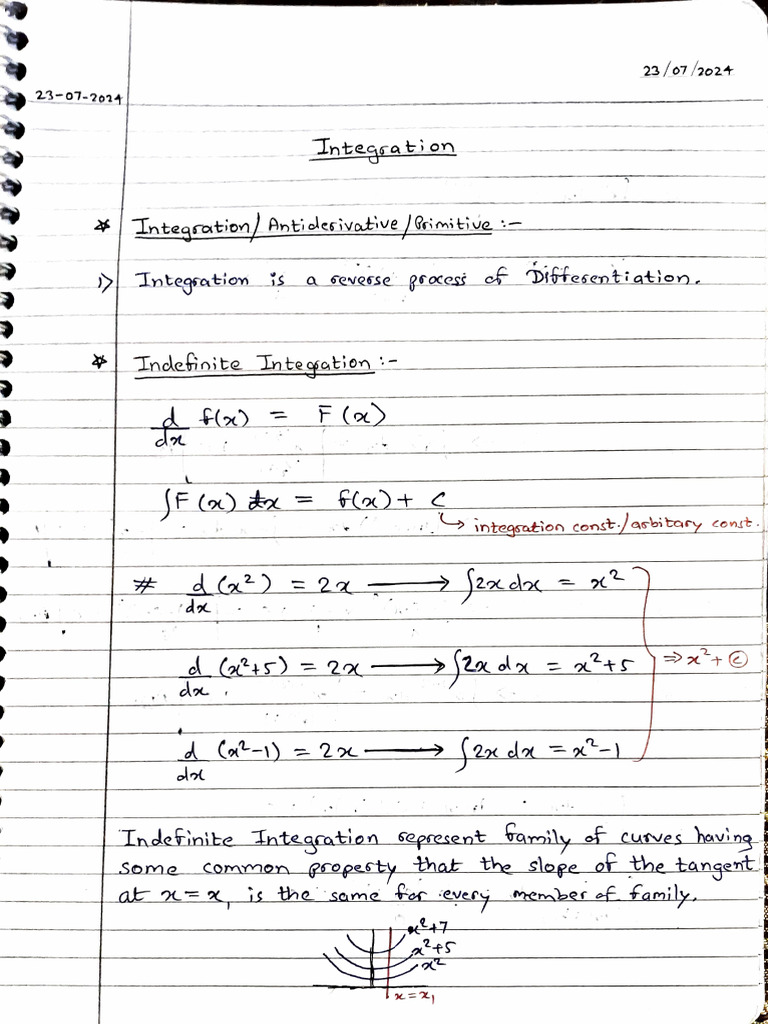 23/07/2024
23-07-2024
Integration
* Integration/Antiderivative/Primitive :-
1) Integration is a reverse process of Differentiation.
* Indefinite Integration :-
d/dx f(x) = F(x)
∫F(x) dx = f(x) + c
↳ integration const./arbitary const.
# d/dx (x²) = 2x ⟶ ∫2x dx = x²
d/dx (x²+5) = 2x ⟶ ∫2x dx = x²+5 ⇒ x² + c
d/dx (x²-1) = 2x ⟶ ∫2x dx = x²-1
Indefinite Integration represent family of curves having
some common property that the slope of the tangent
at x = x₁ is the same for every member of family.
x²+7
x²+5
x²
x = x₁